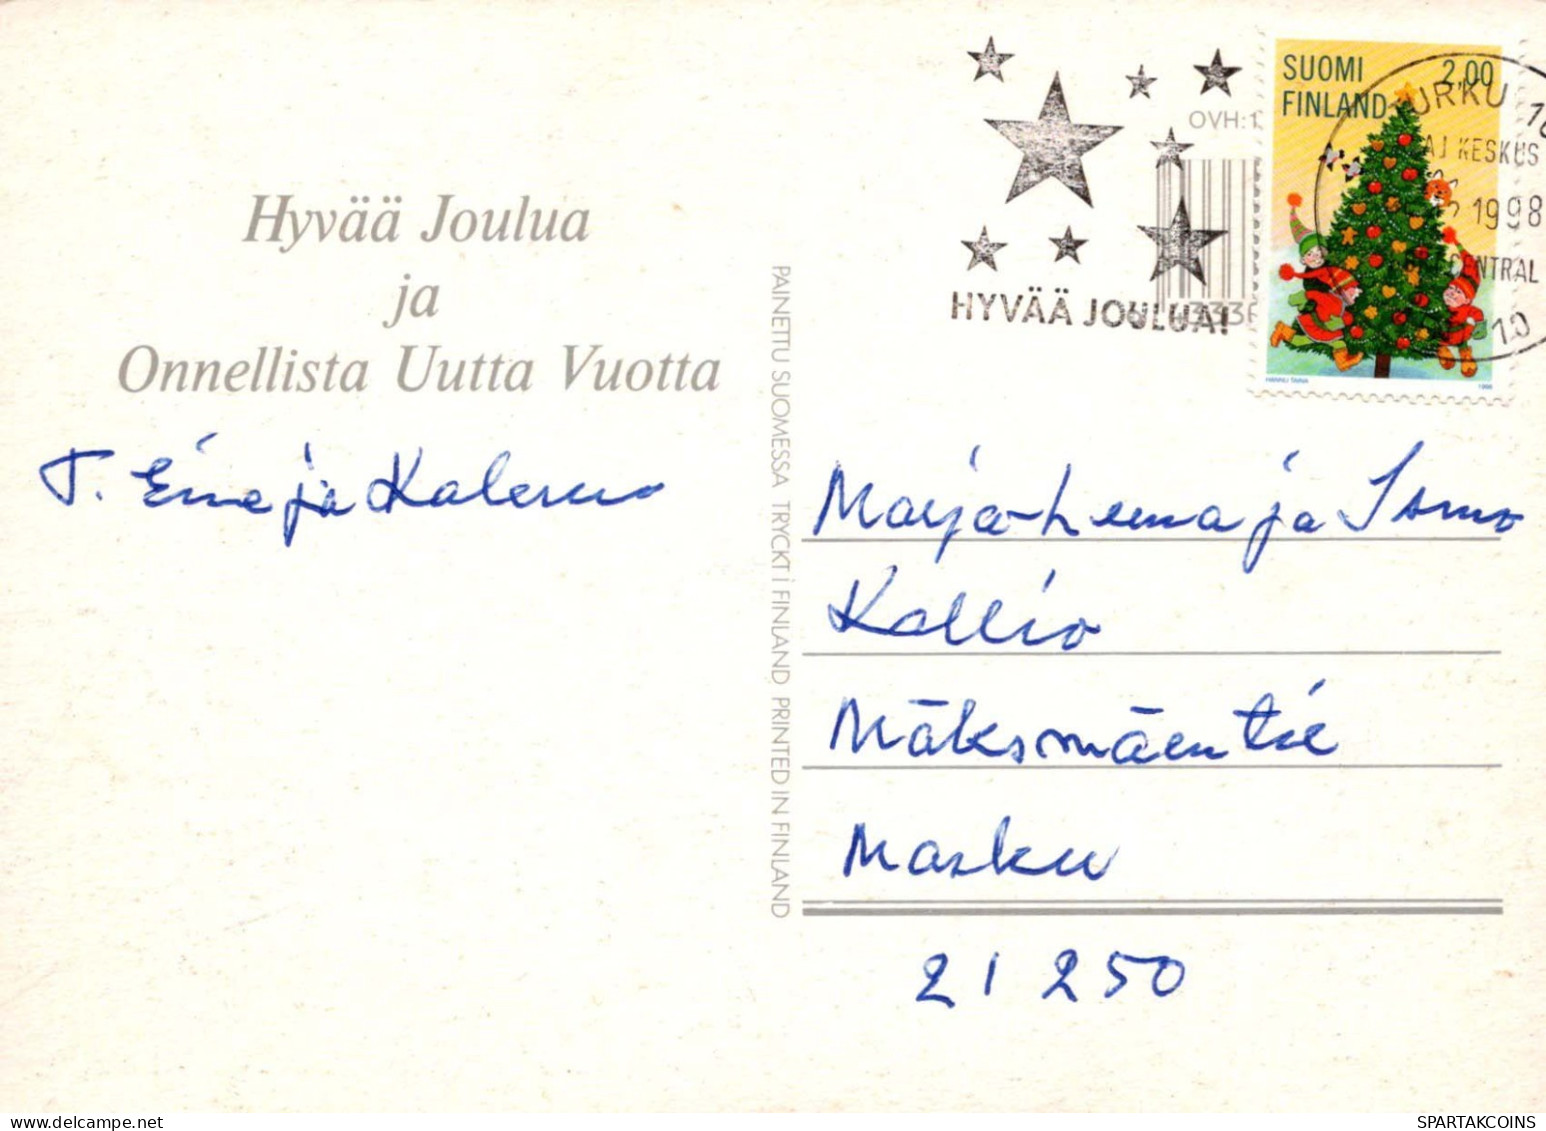 Hyvää Joulua
ja
Onnellista Uutta Vuotta
T. Eine ja Kalervo
PAINETTU SUOMESSA TRYCKT I FINLAND PRINTED IN FINLAND
OVH:1
HYVÄÄ JOULUA!
SUOMI
FINLAND
2,00
HANNU TAINA
1998
TURKU 10
KESKUS
1998
CENTRAL
10
Marja-Leena ja Ismo
Kallio
Mäksmäentie
Masku
21250
SPARTAKCOINS